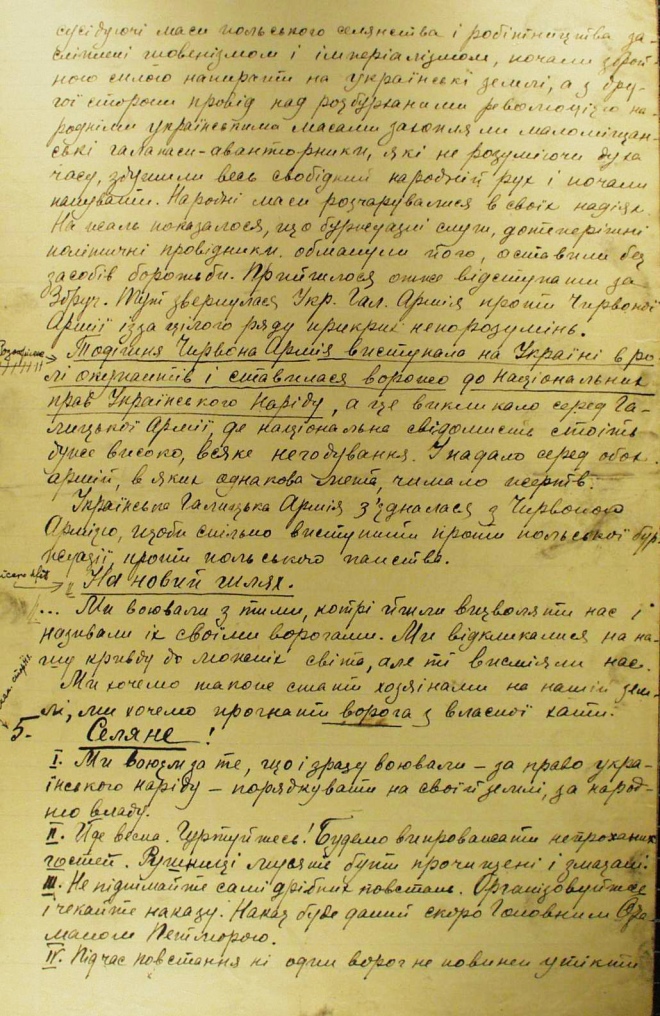 сусідуючі маси польського селянства і робітництва за-
сліплені шовенізмом і імперіалізмом, почали зброй-
ною силою напирати на українські землі, а з дру-
гої сторони провід над розбурханими революцією на-
родніми українськими масами захопляли маломіщан-
ські галапаси-авантюрники, які не розуміючи духа
часу, здушили весь свобідний народній рух і почали
панувати. Народні маси розчарувалися в своїх надіях.
На жаль показалося, що буржуазні слуги, дотеперішні
політичні провідники обманули його, оставили без
засобів боротьби. Прийшлося отже відступати за
Збруч. Тут звернулася Укр. Гал. Армія проти Червоної
Армії ізза цілого ряду прикрих непорозумінь.
Тодішня Червона Армія виступала на Україні в ро-
лі окупантів і ставилася ворожо до національних
прав Українського Наріду, а це викликало серед Га-
лицької Армії, де національна свідомість стоіть
дуже високо, всяке негодування. І падало серед обох
армій, в яких однакова мета, чимало жертв.
Українська Галицька Армія з'єдналася з Червоною
Армією, щоби спільно виступити проти польської бур-
жуазії, проти польського панства.
" На новий шлях.
... Ми воювали з тими, котрі йшли визволяти нас і
називали іх своїми ворогами. Ми відкликалися на на-
шу кривду до можніх світа, але ті висміяли нас.
Ми хочемо також стати хозяїнами на нашій зем-
лі, ми хочемо прогнати ворога з власної хати.
5. Селяне!
I. Ми воюєм за те, що і зразу воювали – за право укра-
їнського наріду – порядкувати на своїй землі, за народ-
ню владу.
II. Йде весна. Гуртуйтесь! Будемо випроважати непроханих
гостей. Рушниці мусять бути прочищені і змазані.
III. Не піднімайте самі дрібних повстань. Організовуйтесь
і чекайте наказу. Наказ буде даний скоро Головним Ота-
маном Петлюрою.
IV. Підчас повстання ні один ворог не повинен утікти